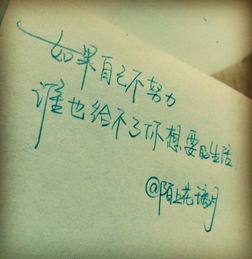 如果自己不努力
谁也给不了你想要的生活
@陌上花璃月